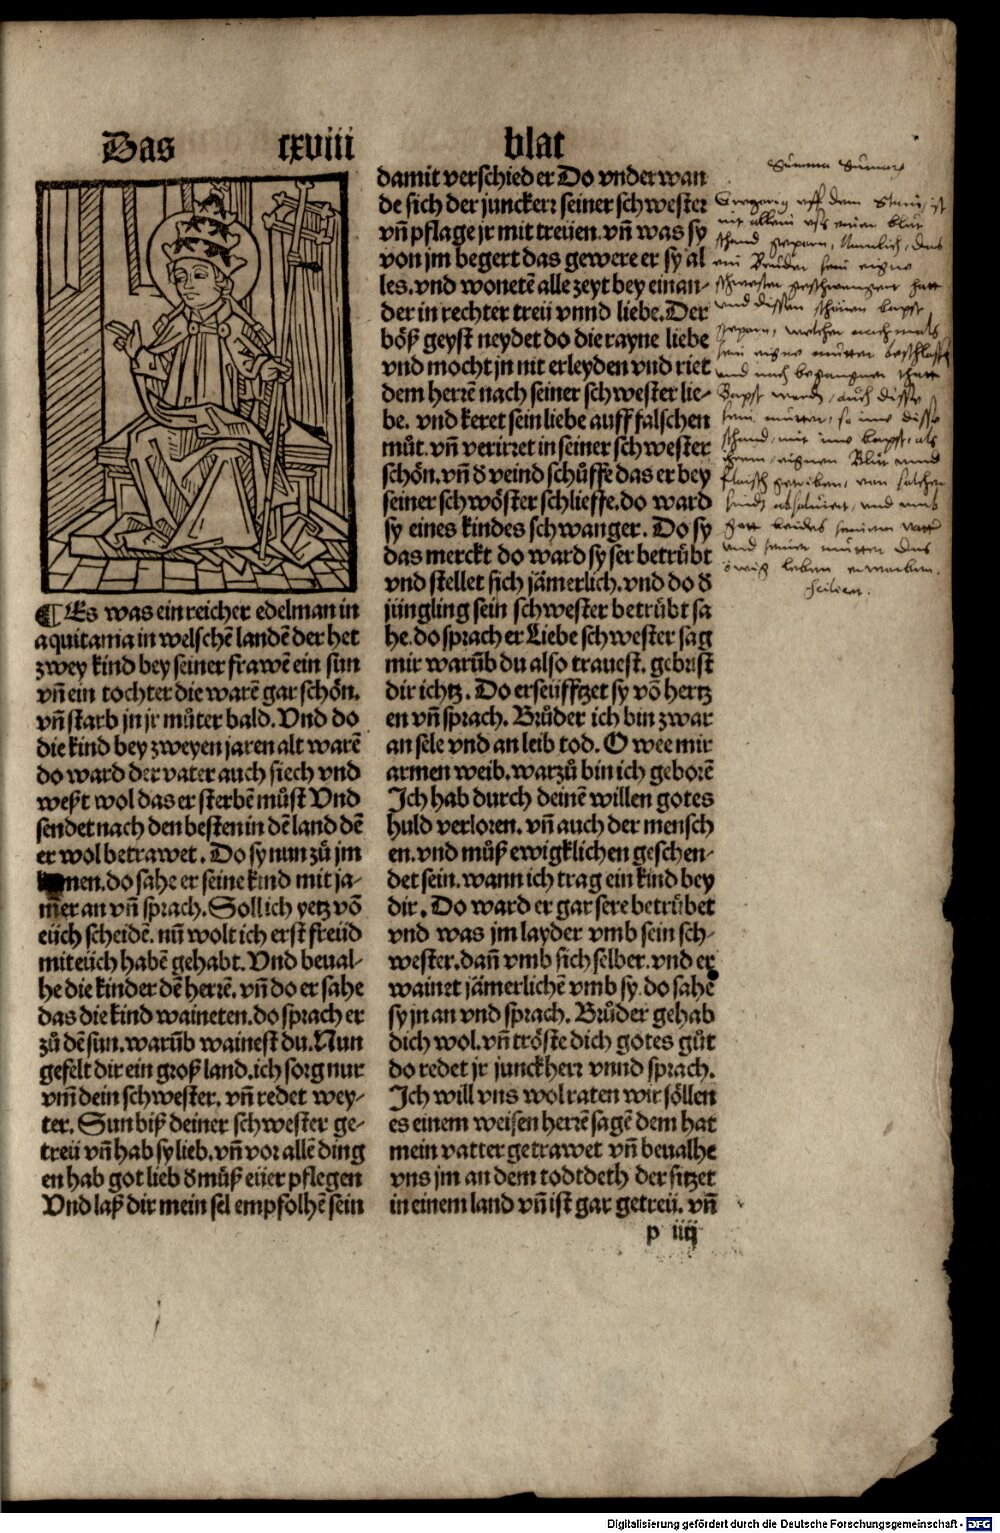 Das cxviii blat
¶ Es was ein reicher edelman in
aquitania in welschē landē der het
zwey kind bey seiner frawē ein sun
vn̄ ein tochter die warē gar schön.
vn̄ starb jn jr můter bald. Vnd do
die kind bey zweyen jaren alt warē
do ward der vater auch siech vnd
weßt wol das er sterbē můst Vnd
sendet nach den besten in dē land dē
er wol betrawet. Do sy nun zů jm
men. do sahe er seine kind mit ja-
mer an vn̄ sprach. Soll ich yetz vō
eüch scheidē. nun̄ wolt ich erst freüd
mit eüch habē gehabt. Vnd beual-
he die kinder dē herrē. vn̄ do er sahe
das die kind waineten. do sprach er
zů dē sun. warūb wainest du. Nun
gefelt dir ein groß land. ich sorg nur
vm̄ dein schwester. vn̄ redet wey-
ter. Sun biß deiner schwester ge-
treü vn̄ hab sy lieb. vn̄ vor allē ding
en hab got lieb d müß eüer pflegen
Vnd laß dir mein sel empfolhē sein
damit verschied er Do vnderwan
de sich der junckerr seiner schwester
vn̄ pflage jr mit treüen. vn̄ was sy
von jm begert das gewere er sy al
les. vnd wonetē alle zeyt bey einan-
der in rechter treü vnnd liebe. Der
böß geyst neydet do die rayne liebe
vnd mocht jn nit erleyden vnd riet
dem herrē nach seiner schwester lie-
be. vnd keret sein liebe auff falschen
můt. vn̄ verirret in seiner schwester
schön. vn̄ d veind schůffe das er bey
seiner schwöster schlieffe. do ward
sy eines kindes schwanger. Do sy
das merckt do ward sy ser betrübt
vnd stellet sich jämerlich. vnd do d
jüngling sein schwester betrübt sa
he. do sprach er Liebe schwester sag
mir warūb du also trauest. gebrist
dir ichtz. Do erseüfftzet sy vō hertz
en vn̄ sprach. Brůder ich bin zwar
an sele vnd an leib tod. O wee mir
armen weib. warzů bin ich geborē
Ich hab durch deinē willen gotes
huld verloren. vn̄ auch der mensch
en. vnd můß ewigklichen geschen-
det sein. wann ich trag ein kind bey
dir. Do ward er gar sere betrübet
vnd was jm layder vmb sein sch-
wester. dan̄ vmb sich selber. vnd er
wainet jämerlichē vmb sy. do sahe
sy jn an vnd sprach. Brůder gehab
dich wol. vn̄ tröste dich gotes güt
do redet jr junckherr vnnd sprach.
Ich will vns wol raten wir söllen
es einem weisen herrē sagē dem hat
mein vatter getrawet vn̄ beualhe
vns jm an dem todtbeth der sitzet
in einem land vn̄ ist gar getreü. vn̄
p iiij
Gregorig vff dem Stein, ist
nit allein vß einer blůt
schand geporn, Namlich, das
ein Bruder sein eigne
schwester geschwengert hatt
vnd dissen schönen
geporn, welcher nachmals
sein eigne mutter beschlaffen
Bapst, auch
sein mutter, so
schand, mit
eignen Blůt vnnd
fleisch getriben, von solchen
sünd absoluiert, vnd
beides seinem vatter
vnd seiner mutter das
ewig leben erworben.
Digitalisierung gefördert durch die Deutsche Forschungsgemeinschaft - DFG